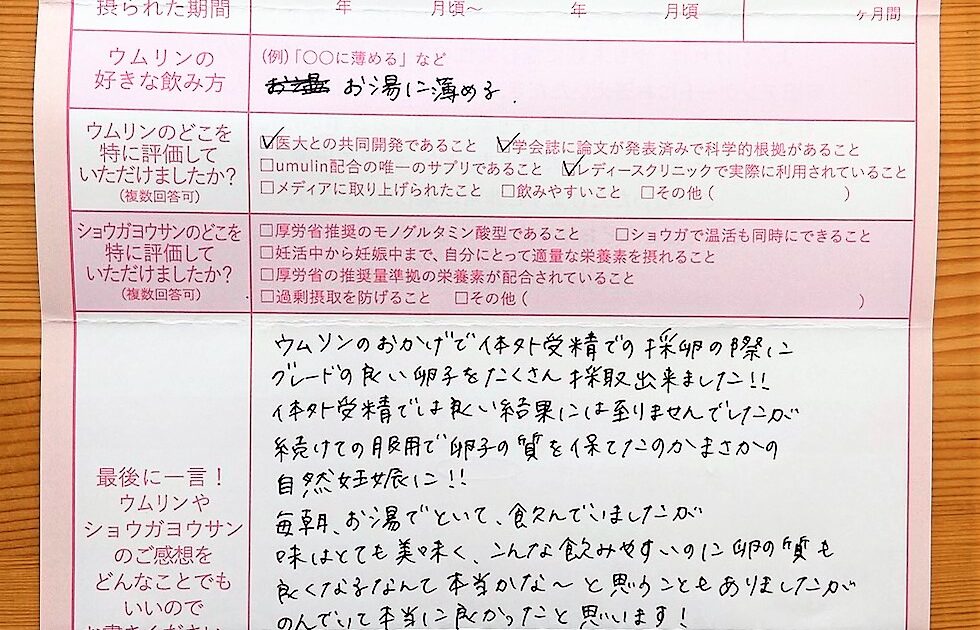 摂られた期間
年 月頃〜 年 月頃
ヶ月間
ウムリンの
好きな飲み方
(例)「〇〇に薄める」など
お湯に薄める.
ウムリンのどこを
特に評価して
いただけましたか?
(複数回答可)
☑医大との共同開発であること ☑学会誌に論文が発表済みで科学的根拠があること
□umulin配合の唯一のサプリであること ☑レディースクリニックで実際に利用されていること
□メディアに取り上げられたこと □飲みやすいこと □その他( )
ショウガヨウサンのどこを
特に評価して
いただけましたか?
(複数回答可)
□厚労省推奨のモノグルタミン酸型であること □ショウガで温活も同時にできること
□妊活中から妊娠中まで、自分にとって適量な栄養素を摂れること
□厚労省の推奨量準拠の栄養素が配合されていること
□過剰摂取を防げること □その他( )
最後に一言!
ウムリンや
ショウガヨウサン
のご感想を
どんなことでも
いいので
ウムリンのおかげで体外受精での採卵の際に
グレードの良い卵子をたくさん採取出来ました!!
体外受精では良い結果には至りませんでしたが
続けての服用で卵子の質を保てたのかまさかの
自然妊娠に!!
毎朝、お湯でといて、飲んでいましたが
味はとても美味く、こんな飲みやすいのに卵の質も
良くなるなんて本当かな〜と思うこともありましたが
のんでいて本当に良かったと思います!